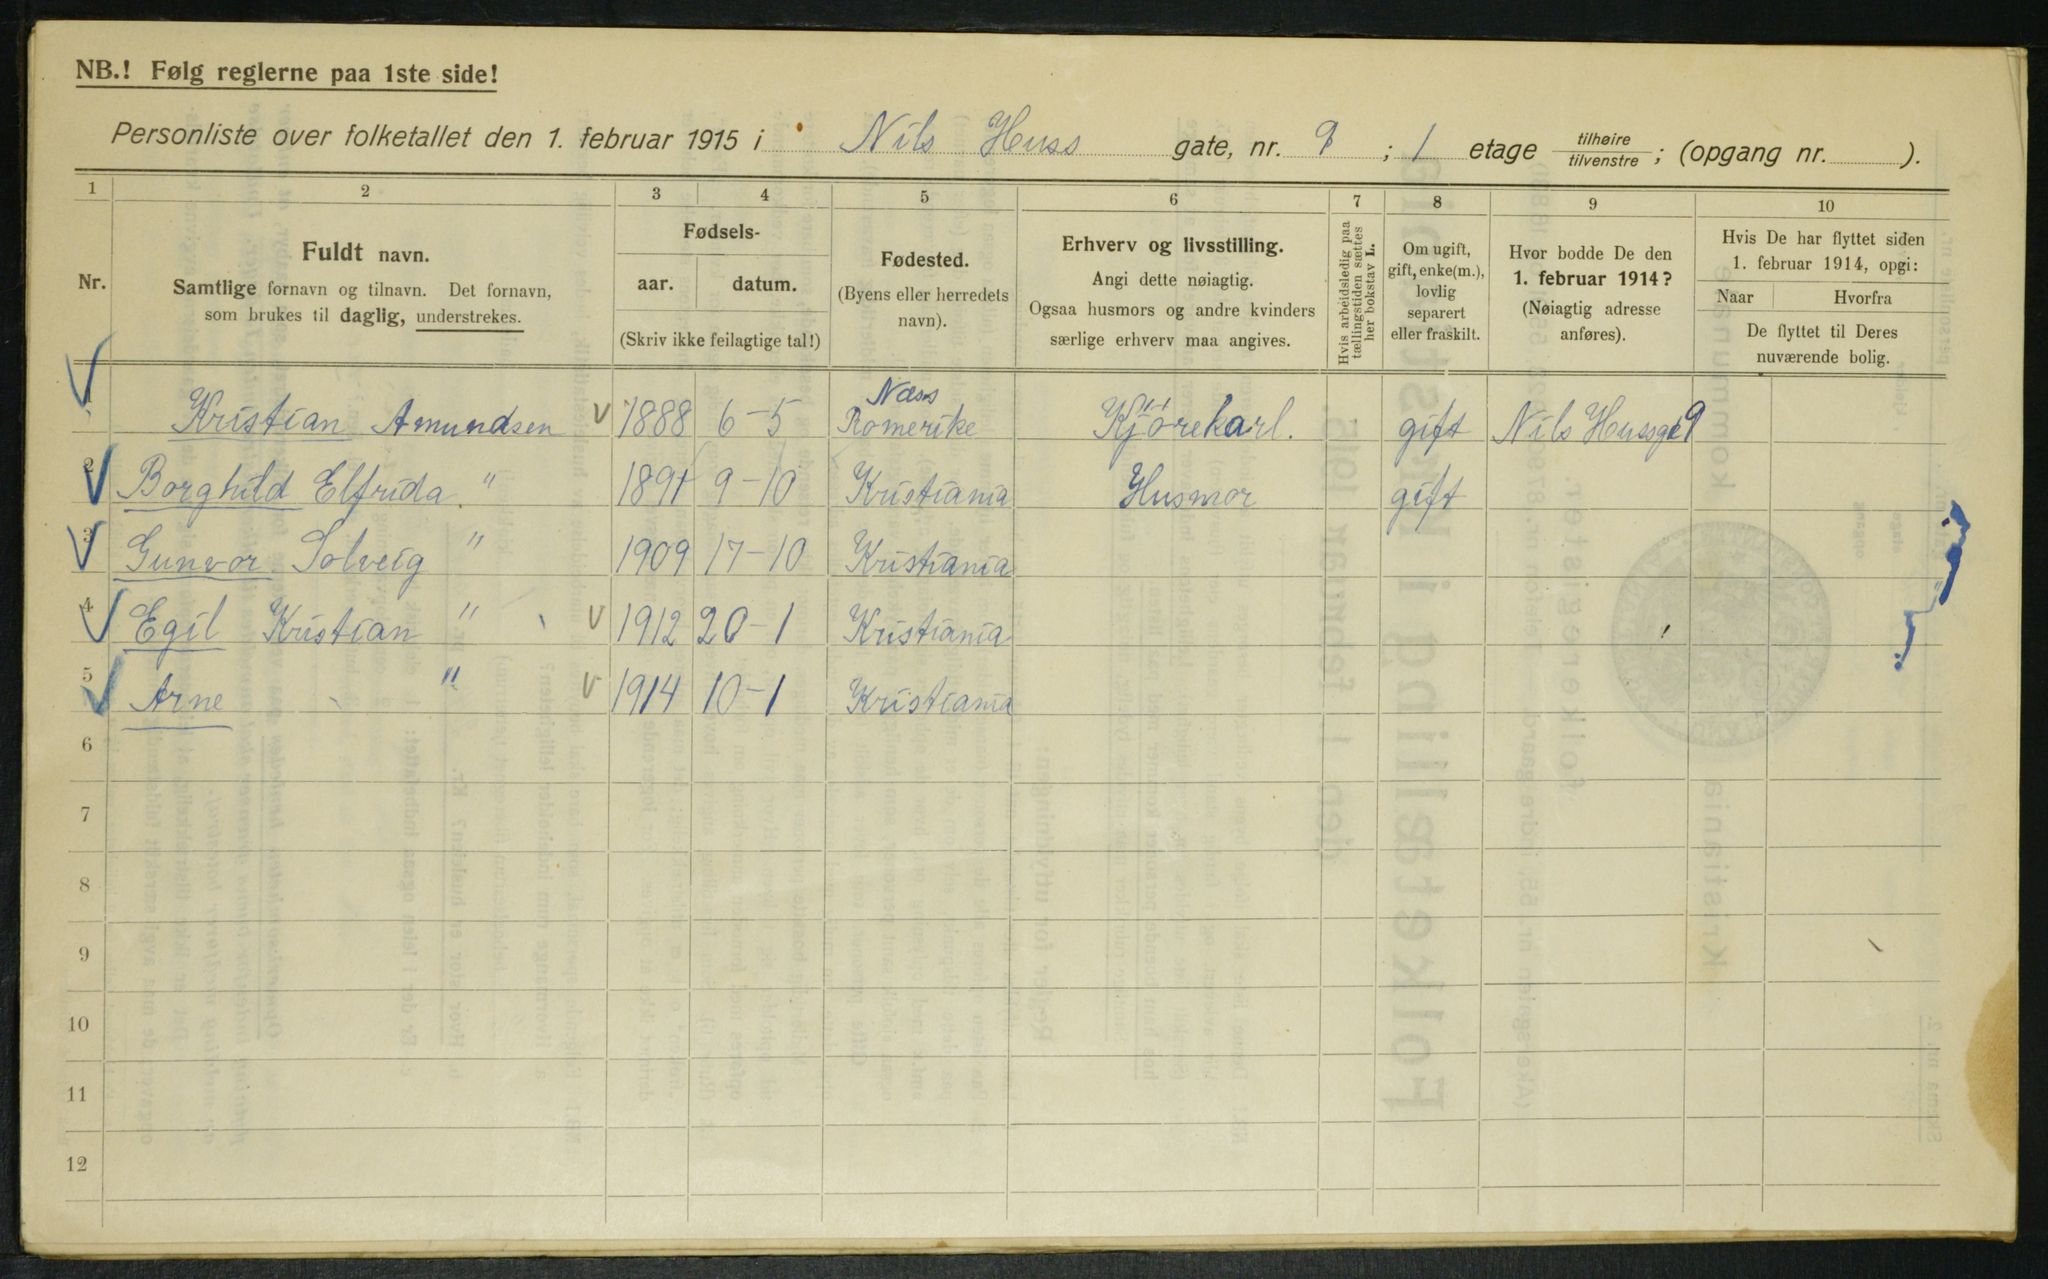 NB.! Følg reglerne paa 1ste side!
Personliste over folketallet den 1. februar 1915 i Nils Huss gate, nr. 9 ; 1 etage tilhøire tilvenstre ; (opgang nr. ).
1 2 3 4 5 6 7 8 9 10
Nr.
Fuldt navn.
Samtlige fornavn og tilnavn. Det fornavn,
som brukes til daglig, understrekes.
Fødsels-
aar. datum.
(Skriv ikke feilagtige tal!)
Fødested.
(Byens eller herredets
navn).
Erhverv og livsstilling.
Angi dette nøiagtig.
Ogsaa husmors og andre kvinders
særlige erhverv maa angives.
Hvis arbeidsledig paa
tællingstiden sættes
her bokstav L.
Om ugift,
gift, enke(m.),
lovlig
separert
eller fraskilt.
Hvor bodde De den
1. februar 1914?
(Nøiagtig adresse
anføres).
Hvis De har flyttet siden
1. februar 1914, opgi:
Naar Hvorfra
De flyttet til Deres
nuværende bolig.
Næss
1 Kristian Amundsen 1888 6-5 Romerike Kjørekarl. gift Nils Hussgt 9
2 Borghild Elfrida " 1891 9-10 Kristiania Husmor gift
3 Gunvor Solveig " 1909 17-10 Kristiania
4 Egil Kristian " 1912 20-1 Kristiania
5 Arne " 1914 10-1 Kristiania
6
7
8
9
10
11
12